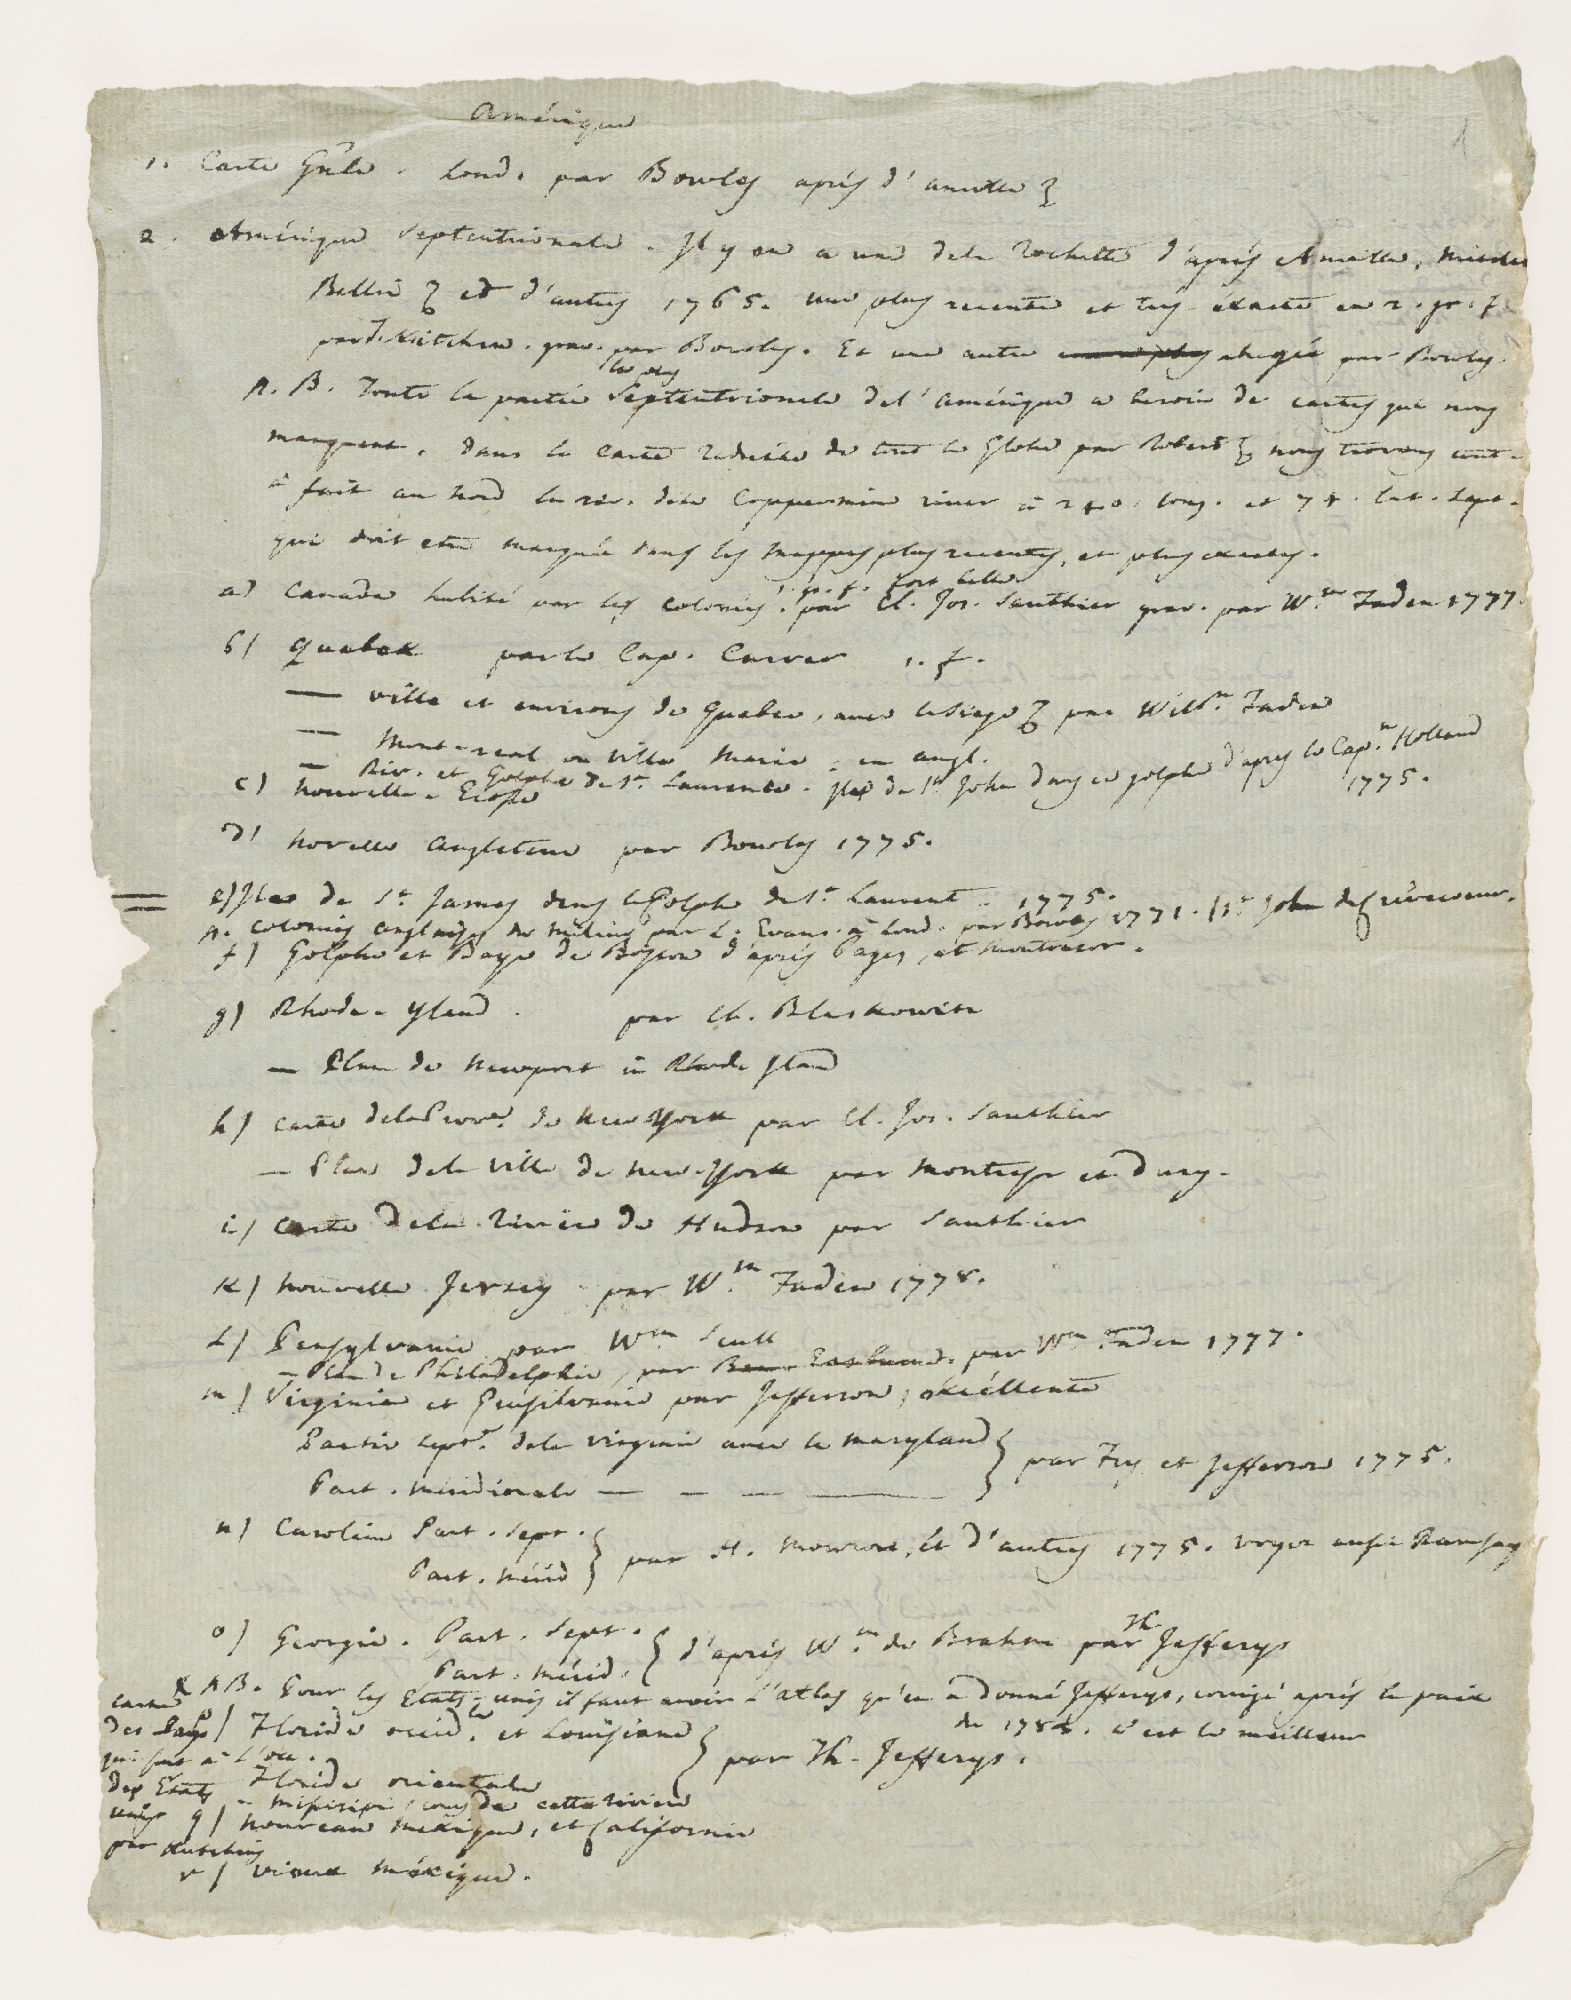 Amérique
1
1. Carte Gñle. Lond. par Bowles aprés d'Anville
2. Amérique Septentrionale. Il y en a une de la Rochette d'aprés Anville,
Bellin et d'autres 1765. une plus recente et très éxacte en 2. gr. f.
par J. Kitchin. grav. par Bowles. Et une autre abrégée par Bowles.
la plus
N. B. Toute la partie Septentrionale de l'Amérique a besoin de cartes qui nous
manquent. Dans la Carte reduite de tout le Globe par Robert nous trouvons tout-
à fait au Nord la riv. dela Coppermine river à 240. long. et 74. lat. sept.
qui doit etre marquée dans les mappes plus recentes, et plus exactes.
1. gr. f. fort belle
a) Canada habité par les colonies. par Cl. Jos. Sauthier grav. par Wm Faden 1777.
b) Quebek par le Cap. Carver 1. f.
— ville et environs de Quebec, avec le siege par Willm. Faden
— Mont-real ou ville Marie, en angl.
— Riv. et Golphe de St. Laurence. Isles de St. John dans ce golphe d'apres le Cap.n Holland
1775.
c) Nouvelle-Ecosse
d) Novelle Angleterre par Bowles 1775.
e) Isles de St. James dans le Golphe de St. Laurent. 1775.
N. Colonies anglaises du milieu par L. Evans à Lond. par Bowles 1771. St. John de Crèvecoeur.
f) Golphe et Baye de Boston d'aprés Pages, et Montresor.
g) Rhode-Yland. par Ch. Blaskowitz
— Plan de Newport in Rhode Island
h) Carte dela Prov.e de New York par Cl. Jos. Sauthier
— Plan dela ville de New-York par Montresor et Dury.
i) Carte dela Riviere de Hudson par Sauthier
k) Nouvelle Jersey par Wm. Faden 1778.
L) Pensylvanie par Wm Scull
— Plan de Philadelphie, par Eastburn. par Wm Faden 1777.
m) Virginie et Pensilvanie par Jefferson, excéllente
Partie sept.e dela virginie avec le Maryland } par Fry et Jefferson 1775.
Part. méridionale — — — ——
n) Caroline Part. Sept. } par H. Mouzon, et d'autres 1775. voyez aussi Ramsay
Part. Mérid
o) Georgie. Part. Sept. } d'aprés Wm. de Brahm par Th. Jefferys
Part. Mérid.
NB. Pour les Etats-unis il faut avoir l'Atlas qu'en a donné Jefferys, corrigé aprés la paix
de 1784. C'est le meilleur
p) Floride occid.le et Louisiane } par Th. Jefferys.
Floride orientale
— Missisipi, cours de cette riviere
q) Nouveau Mexique, et Californie
r) Vieux Méxique.
carte
des Pays
qui sont à l'occ.
des Etats
unis
par Hutchins